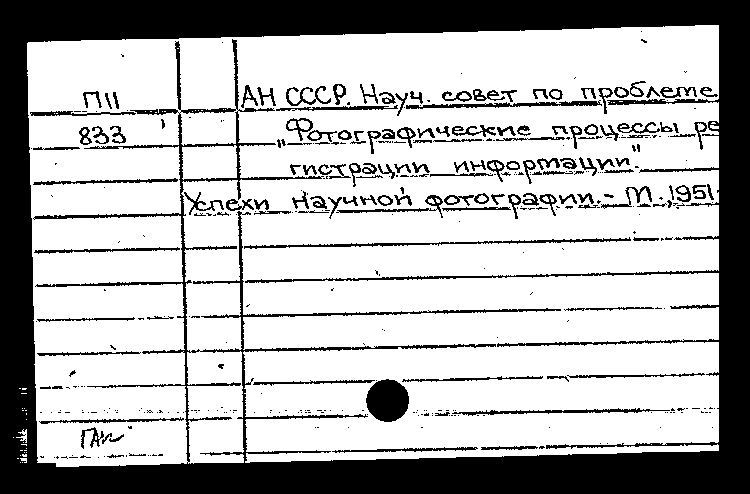 П11 АН СССР. Науч. совет по проблеме
833 „Фотографические процессы ре
гистрации информации".
Успехи научной фотографии. - М., 1951-